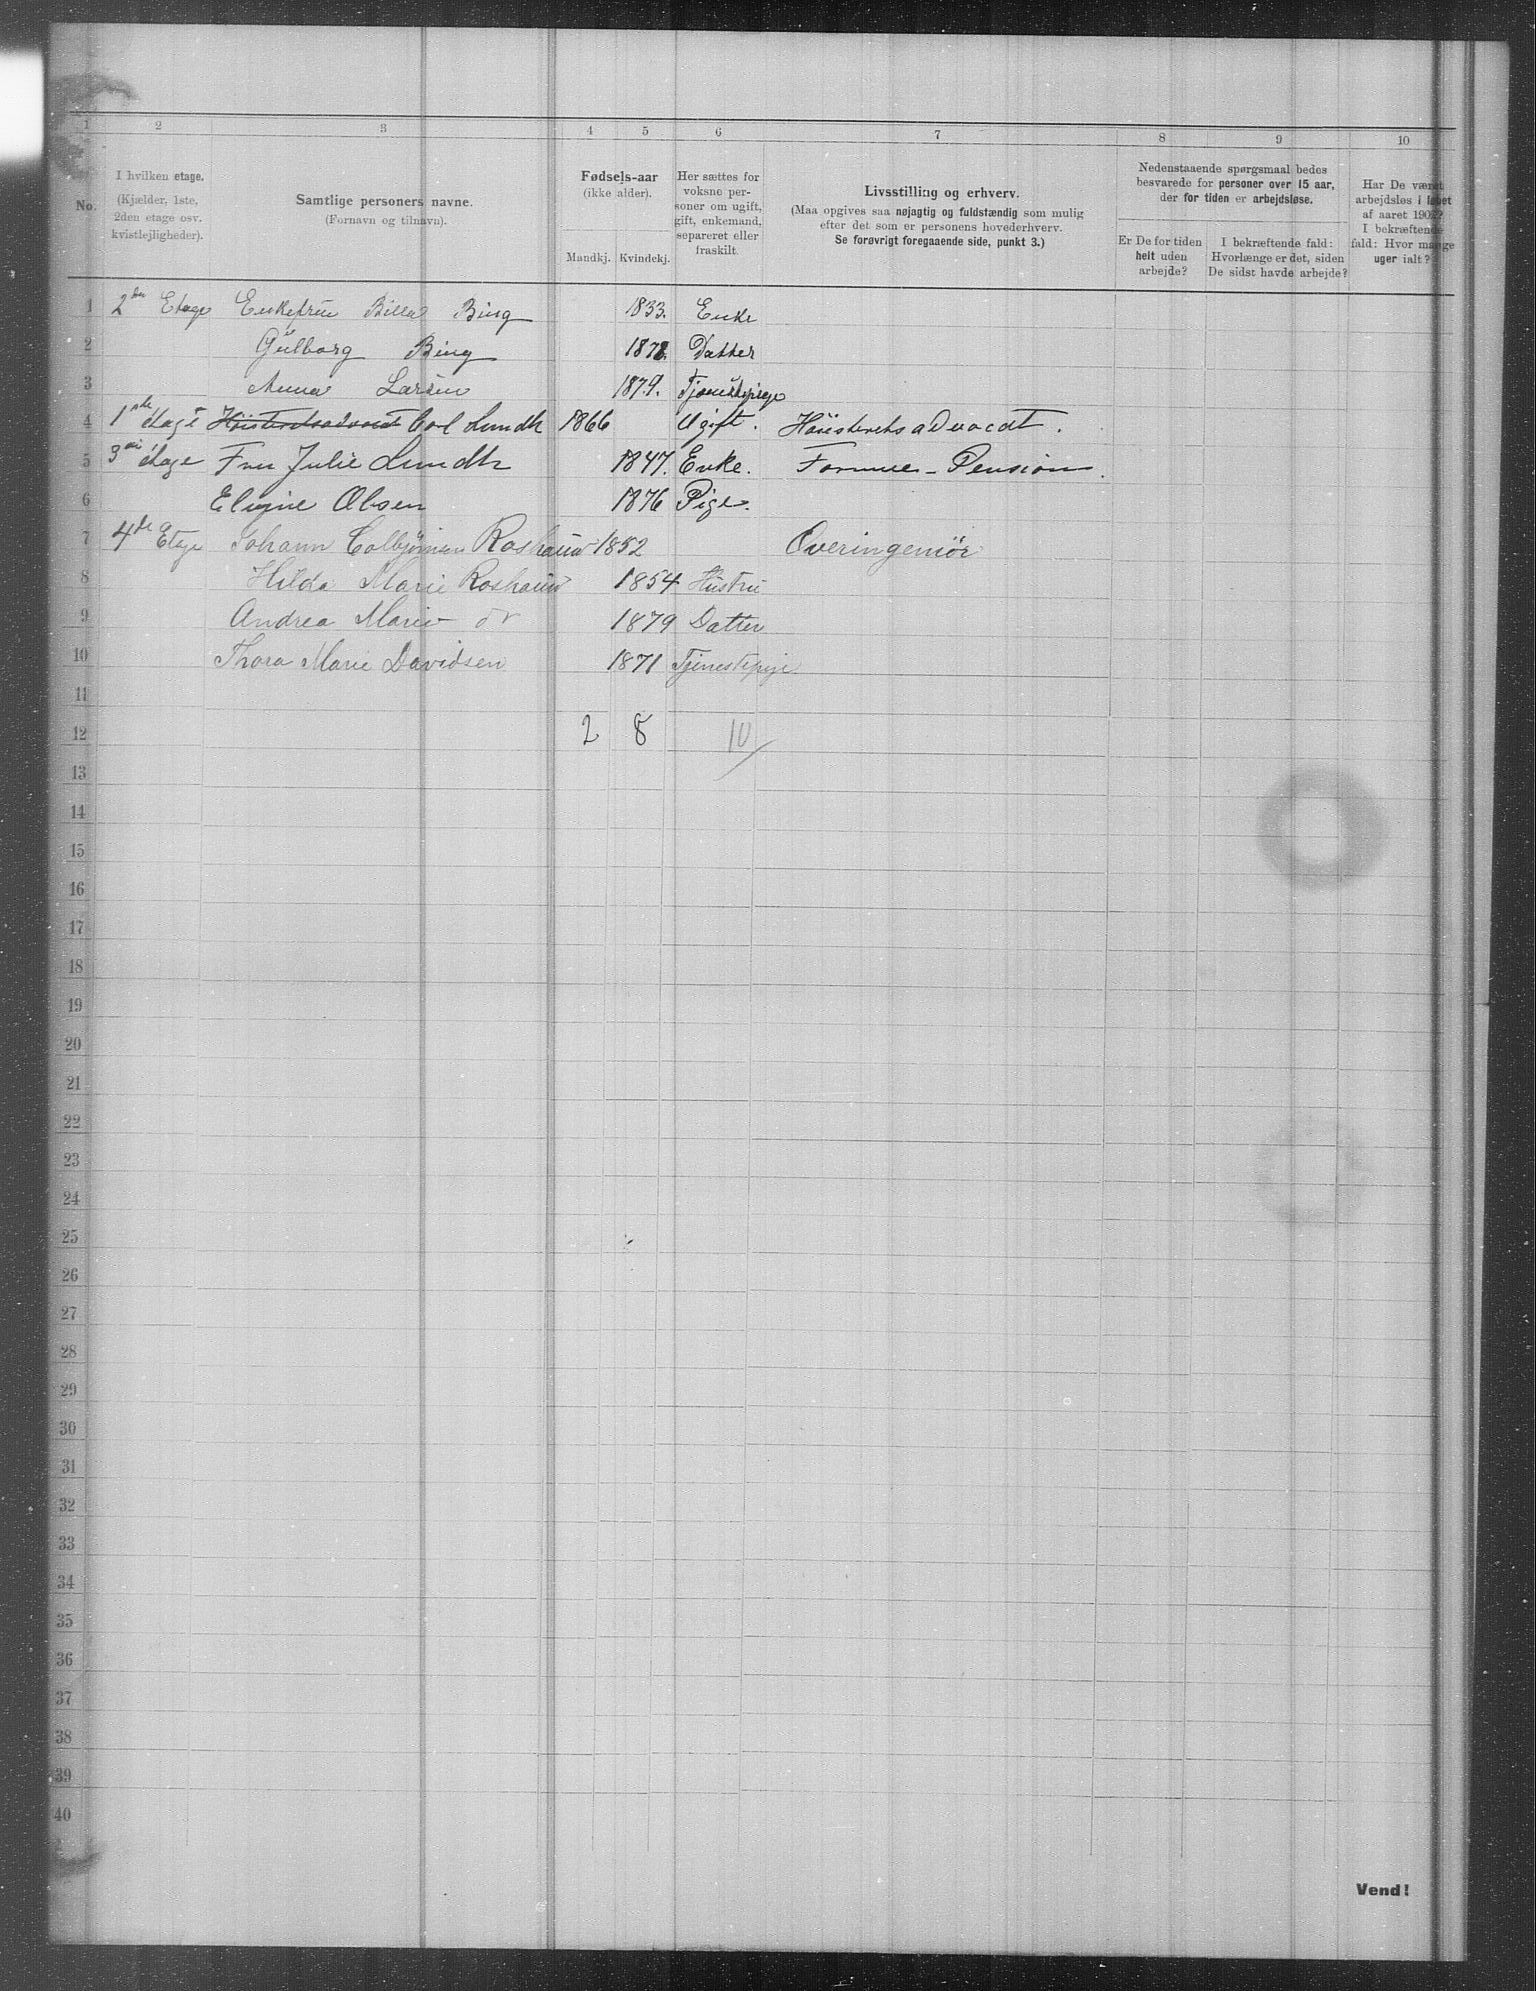 1 2 3 4 5 6 7 8 9 10
No.
I hvilken etage.
(Kjælder, 1ste,
2den etage osv.
kvistlejligheder).
Samtlige personers navne.
(Fornavn og tilnavn).
Fødsels-aar
(ikke alder).
Mandkj. Kvindekj.
Her sættes for
voksne per-
soner om ugift,
gift, enkemand,
separeret eller
fraskilt.
Livsstilling og erhverv.
(Maa opgives saa nøjagtig og fuldstændig som mulig
efter det som er personens hovederhverv.
Se forøvrigt foregaaende side, punkt 3.)
Nedenstaaende spørgsmaal bedes
besvarede for personer over 15 aar,
der for tiden er arbejdsløse.
Er De for tiden
helt uden
arbejde?
I bekræftende fald:
Hvorlænge er det, siden
De sidst havde arbejde?
Har De været
arbejdsløs i løbet
af aaret 1902?
I bekræftende
fald: Hvor mange
uger ialt?
1 2den Etage Enkefrue Billa Bing 1833. Enke
2 Gülborg Bing 1878. Datter
3 Anna Larsen 1879. Tjenestepige
4 1ste Etage Höiesteretsadvocat Carl Lundh 1866 Ugift. Höiesteretsadvocat.
5 3die Etage Fru Julie Lundh 1847. Enke. Formue-Pension.
6 Eligine Olsen 1876 Pige.
7 4de Etage Johann Colbjörnsen Roshauw 1852 Overingeniör
8 Hilda Marie Roshauw 1854 Hüstru
9 Andrea Marie do 1879 Datter
10 Thora Marie Davidsen 1871 Tjenestepige
11
12 2 8 10
13
14
15
16
17
18
19
20
21
22
23
24
25
26
27
28
29
30
31
32
33
34
35
36
37
38
39
40
Vend!